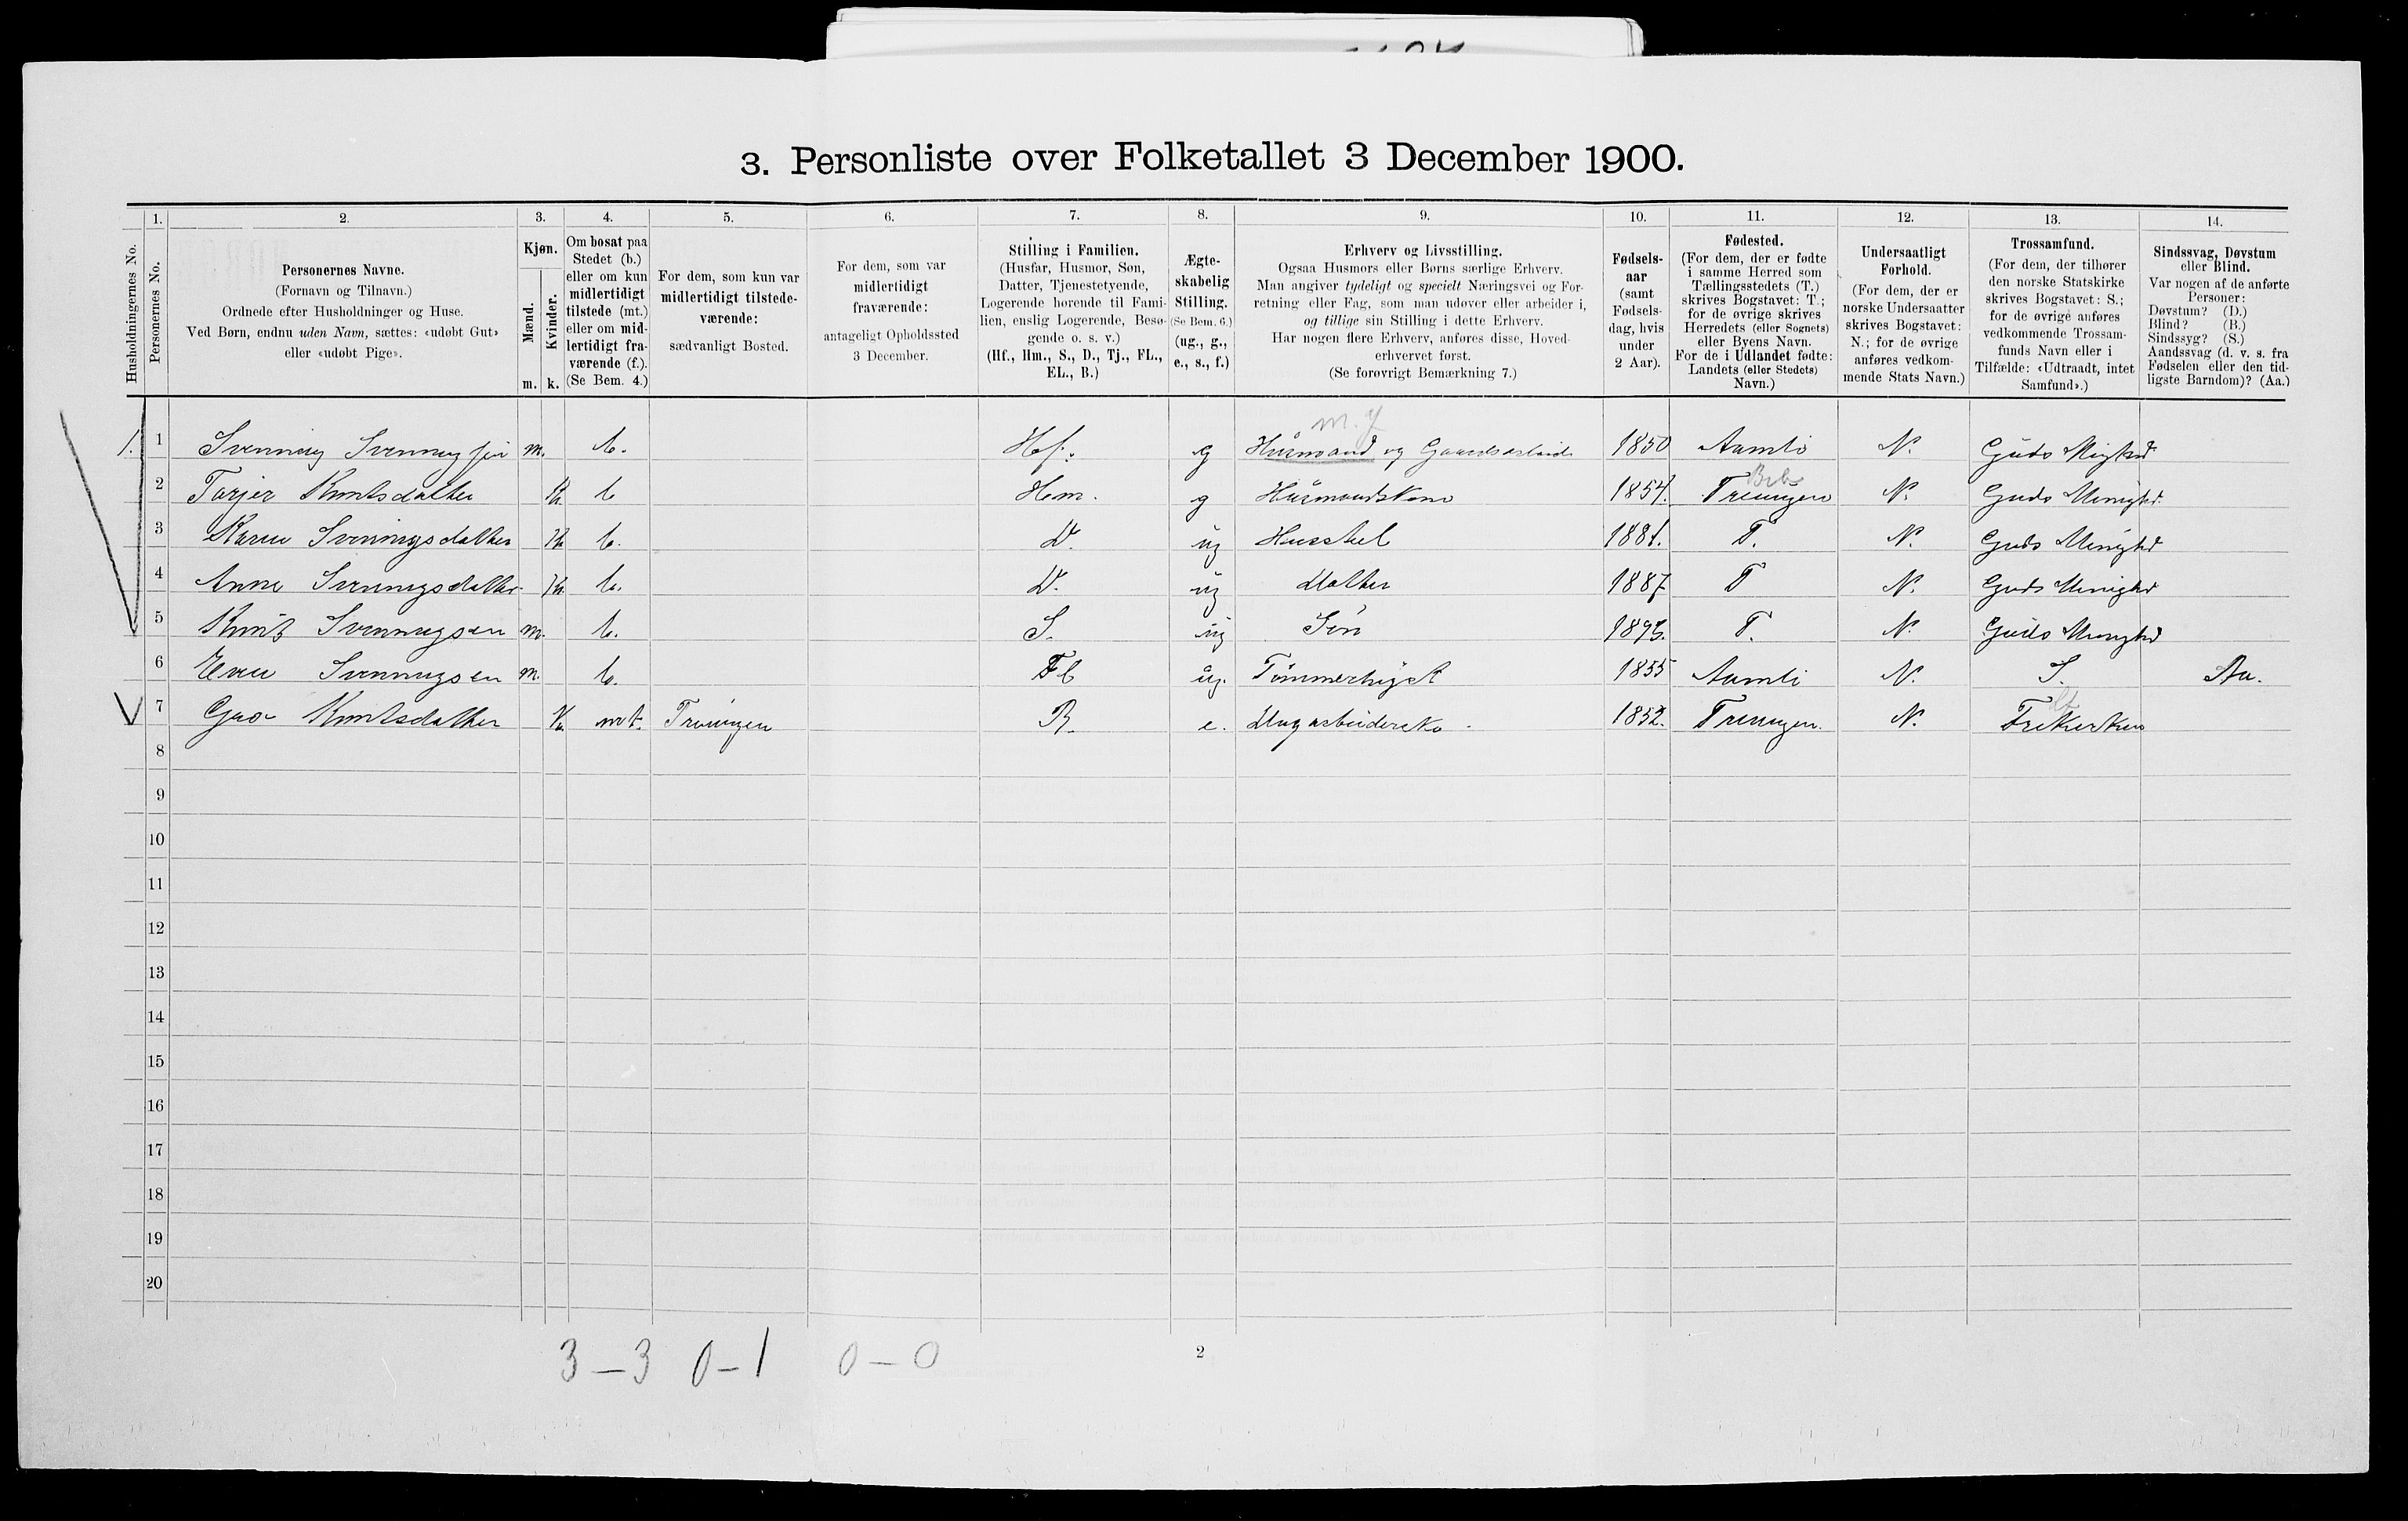 3. Personliste over Folketallet 3 December 1900.
1. 2. 3. 4. 5. 6. 7. 8. 9. 10. 11. 12. 13. 14.
Husholdningernes No.
Personernes No.
Personernes Navne.
(Fornavn og Tilnavn.)
Ordnede efter Husholdninger og Huse.
Ved Børn, endnu uden Navn, sættes: «udøbt Gut»
eller «udøbt Pige».
Kjøn.
Mænd.
Kvinder.
m. k.
Om bosat paa
Stedet (b.)
eller om kun
midlertidigt
tilstede (mt.)
eller om mid-
lertidigt fra-
værende (f.).
(Se Bem. 4.)
For dem, som kun var
midlertidigt tilstede-
værende:
sædvanligt Bosted.
For dem, som var
midlertidigt
fraværende:
antageligt Opholdssted
3 December.
Stilling i Familien.
(Husfar, Husmor, Søn,
Datter, Tjenestetyende,
Logerende hørende til Fami-
lien, enslig Logerende, Besø-
gende o. s. v.)
(Hf., Hm., S., D., Tj., FL.,
EL., B.)
Ægte-
skabelig
Stilling.
(Se Bem. 6.)
(ug., g.,
e., s., f.)
Erhverv og Livsstilling.
Ogsaa Husmors eller Børns særlige Erhverv.
Man angiver tydeligt og specielt Næringsvei og For-
retning eller Fag, som man udøver eller arbeider i,
og tillige sin Stilling i dette Erhverv.
Har nogen flere Erhverv, anføres disse, Hoved-
erhvervet først.
(Se forøvrigt Bemærkning 7.)
Fødsels-
aar
(samt
Fødsels-
dag, hvis
under
2 Aar).
Fødested.
(For dem, der er fødte
i samme Herred som
Tællingsstedets (T.)
skrives Bogstavet: T.;
for de øvrige skrives
Herredets (eller Sognets)
eller Byens Navn.
For de i Udlandet fødte:
Landets (eller Stedets)
Navn.)
Undersaatligt
Forhold.
(For dem, der er
norske Undersaatter
skrives Bogstavet:
N.; for de øvrige
anføres vedkom-
mende Stats Navn.)
Trossamfund.
(For dem, der tilhører
den norske Statskirke
skrives Bogstavet: S.;
for de øvrige anføres
vedkommende Trossam-
funds Navn eller i
Tilfælde: «Udtraadt, intet
Samfund».)
Sindssvag, Døvstum
eller Blind.
Var nogen af de anførte
Personer:
Døvstum? (D.)
Blind? (B.)
Sindssyg? (S.)
Aandssvag (d. v. s. fra
Fødselen eller den tid-
ligste Barndom)? (Aa.)
1. 1 Svenning m. b. Hf. g Husmand og Gaardsarbeide 1850 Aamli N. Guds Mighed
2 Tarjer Knutsdatter k. b Hm. g Husmandskone 1854. Treungen N. Guds Menighd.
3 Karen Svenningsdatter k b. D. ug Husstel 1881. T. N. Guds Menighd
4 Anne Svenningsdatter k b. D. ug Datter 1887 T N. Guds Menighd
5 Knut Svenningsen m. b. S. ug Søn T. N. Guds Menighd
6 Svenningsen m. b. Fl ug. Tømmerhugst 1855 Aamli N. S. Aa.
7 Gro Knutsdatter k. mt. Treungen B. e. Dagarbeiderske 1852. Treungen. N. Frikirken
8
9
10
11
12
13
14
15
16
17
18
19
20
3 – 3 0 – 1 0 – 0
2